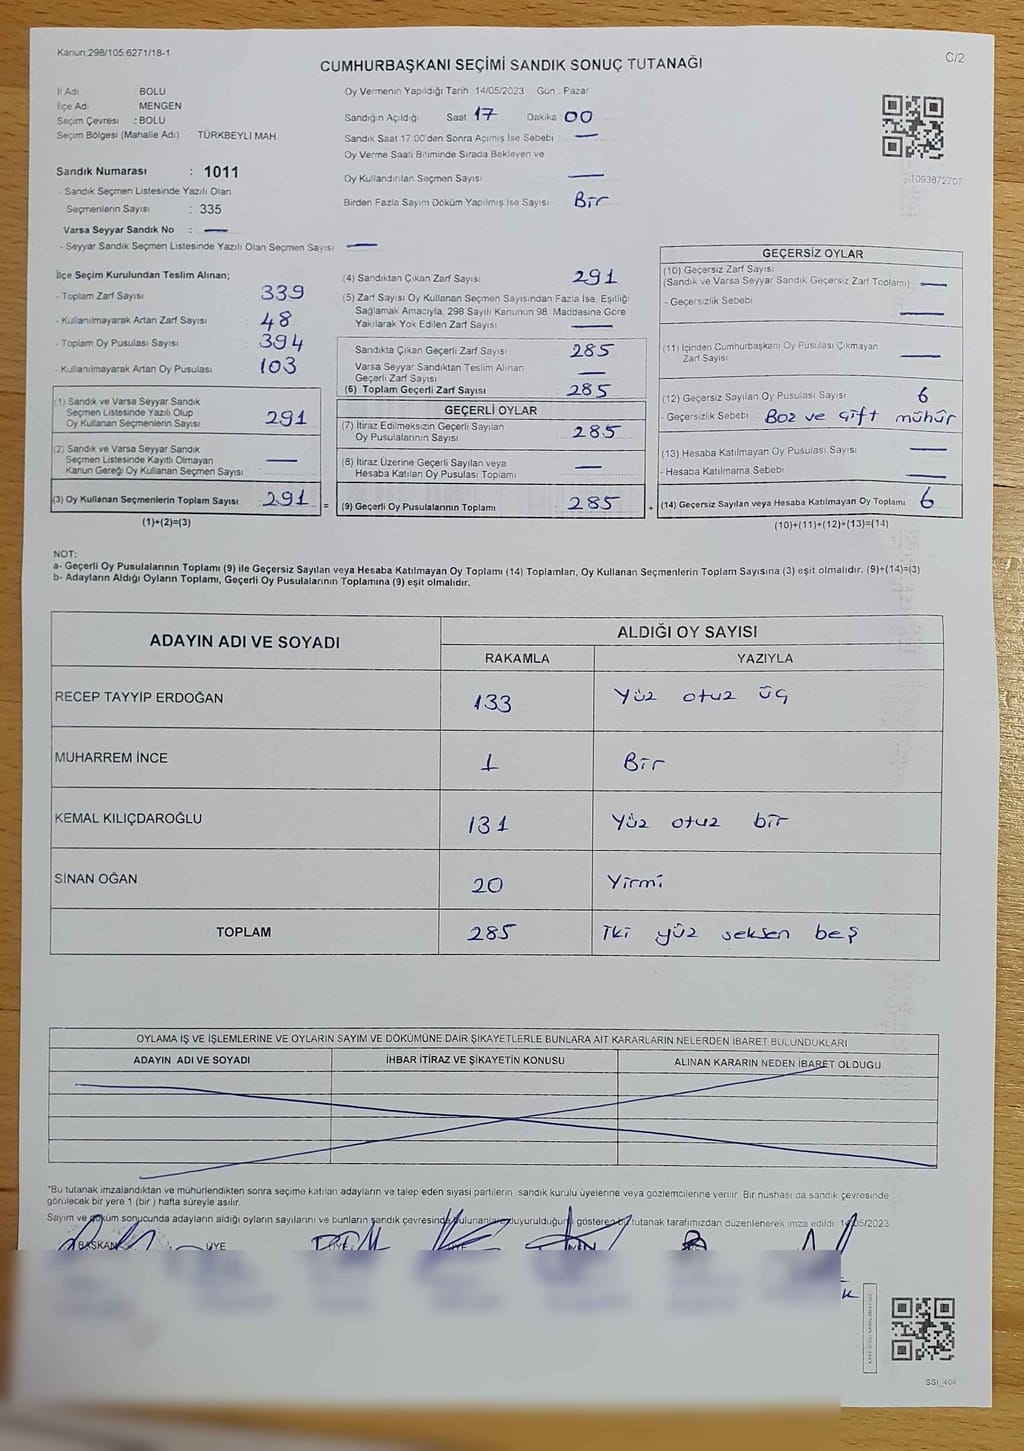 Kanun;298/105,6271/18-1
C/2
CUMHURBAŞKANI SEÇİMİ SANDIK SONUÇ TUTANAĞI
İl Adı BOLU
İlçe Adı MENGEN
Seçim Çevresi : BOLU
Seçim Bölgesi (Mahalle Adı) : TÜRKBEYLİ MAH.
Oy Vermenin Yapıldığı Tarih 14/05/2023 Gün : Pazar
Sandığın Açıldığı Saat 17 Dakika 00
Sandık Saat 17:00'den Sonra Açımış İse Sebebi : —
Oy Verme Saati Bitiminde Sırada Bekleyen ve
Oy Kullandırılan Seçmen Sayısı —
Birden Fazla Sayım Döküm Yapılmış İse Sayısı Bir
1093872707
Sandık Numarası : 1011
- Sandık Seçmen Listesinde Yazılı Olan
Seçmenlerin Sayısı : 335
Varsa Seyyar Sandık No : —
- Seyyar Sandık Seçmen Listesinde Yazılı Olan Seçmen Sayısı —
İlçe Seçim Kurulundan Teslim Alınan;
- Toplam Zarf Sayısı : 339
- Kullanılmayarak Artan Zarf Sayısı : 48
- Toplam Oy Pusulası Sayısı : 394
- Kullanılmayarak Artan Oy Pusulası : 103
(1) Sandık ve Varsa Seyyar Sandık
Seçmen Listesinde Yazılı Olup
Oy Kullanan Seçmenlerin Sayısı : 291
(2) Sandık ve Varsa Seyyar Sandık
Seçmen Listesinde Kayıtlı Olmayan
Kanun Gereği Oy Kullanan Seçmen Sayısı : —
(3) Oy Kullanan Seçmenlerin Toplam Sayısı : 291
(1)+(2)=(3)
(4) Sandıktan Çıkan Zarf Sayısı 291
(5) Zarf Sayısı Oy Kullanan Seçmen Sayısından Fazla İse, Eşitliği
Sağlamak Amacıyla, 298 Sayılı Kanunun 98. Maddesine Göre
Yakılarak Yok Edilen Zarf Sayısı —
Sandıkta Çıkan Geçerli Zarf Sayısı 285
Varsa Seyyar Sandıktan Teslim Alınan
Geçerli Zarf Sayısı —
(6) Toplam Geçerli Zarf Sayısı 285
GEÇERLİ OYLAR
(7) İtiraz Edilmeksizin Geçerli Sayılan
Oy Pusulalarının Sayısı 285
(8) İtiraz Üzerine Geçerli Sayılan veya
Hesaba Katılan Oy Pusulası Toplamı —
= (9) Geçerli Oy Pusulalarının Toplamı 285
GEÇERSİZ OYLAR
(10) Geçersiz Zarf Sayısı
(Sandık ve Varsa Seyyar Sandık Geçersiz Zarf Toplamı) —
- Geçersizlik Sebebi —
(11) İçinden Cumhurbaşkanı Oy Pusulası Çıkmayan
Zarf Sayısı —
(12) Geçersiz Sayılan Oy Pusulası Sayısı 6
- Geçersizlik Sebebi Boz ve çift mühür
(13) Hesaba Katılmayan Oy Pusulası Sayısı —
- Hesaba Katılmama Sebebi —
+ (14) Geçersiz Sayılan veya Hesaba Katılmayan Oy Toplamı 6
(10)+(11)+(12)+(13)=(14)
NOT:
a- Geçerli Oy Pusulalarının Toplamı (9) ile Geçersiz Sayılan veya Hesaba Katılmayan Oy Toplamı (14) Toplamları, Oy Kullanan Seçmenlerin Toplam Sayısına (3) eşit olmalıdır. (9)+(14)=(3)
b- Adayların Aldığı Oyların Toplamı, Geçerli Oy Pusulalarının Toplamına (9) eşit olmalıdır.
ADAYIN ADI VE SOYADI
ALDIĞI OY SAYISI
RAKAMLA YAZIYLA
RECEP TAYYİP ERDOĞAN 133 Yüz otuz üç
MUHARREM İNCE 1 Bir
KEMAL KILIÇDAROĞLU 131 Yüz otuz bir
SİNAN OĞAN 20 Yirmi
TOPLAM 285 İki yüz seksen beş
OYLAMA İŞ VE İŞLEMLERİNE VE OYLARIN SAYIM VE DÖKÜMÜNE DAİR ŞİKAYETLERLE BUNLARA AİT KARARLARIN NELERDEN İBARET BULUNDUKLARI
ADAYIN ADI VE SOYADI İHBAR İTİRAZ VE ŞİKAYETİN KONUSU ALINAN KARARIN NEDEN İBARET OLDUGU
*Bu tutanak imzalandıktan ve mühürlendikten sonra seçime katılan adayların ve talep eden siyasi partilerin sandık kurulu üyelerine veya gözlemcilerine verilir. Bir nüshası da sandık çevresinde
görülecek bir yere 1 (bir ) hafta süreyle asılır.
Sayım ve döküm sonucunda adayların aldığı oyların sayılarını ve bunların sandık çevresinde bulunanlara duyurulduğunu gösteren bu tutanak tarafımızdan düzenlenerek imza edildi. 14/05/2023
BAŞKAN ÜYE
SSI_404